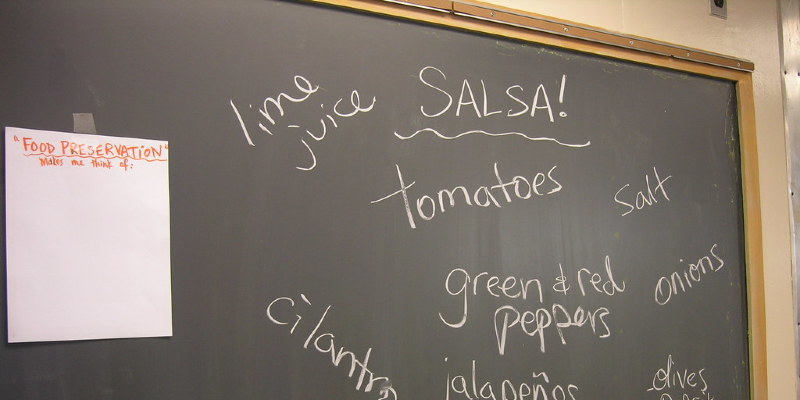 "FOOD PRESERVATION"
makes me think of:
lime
juice
SALSA!
tomatoes
salt
green & red
peppers
onions
cilantro
jalapeños
olives